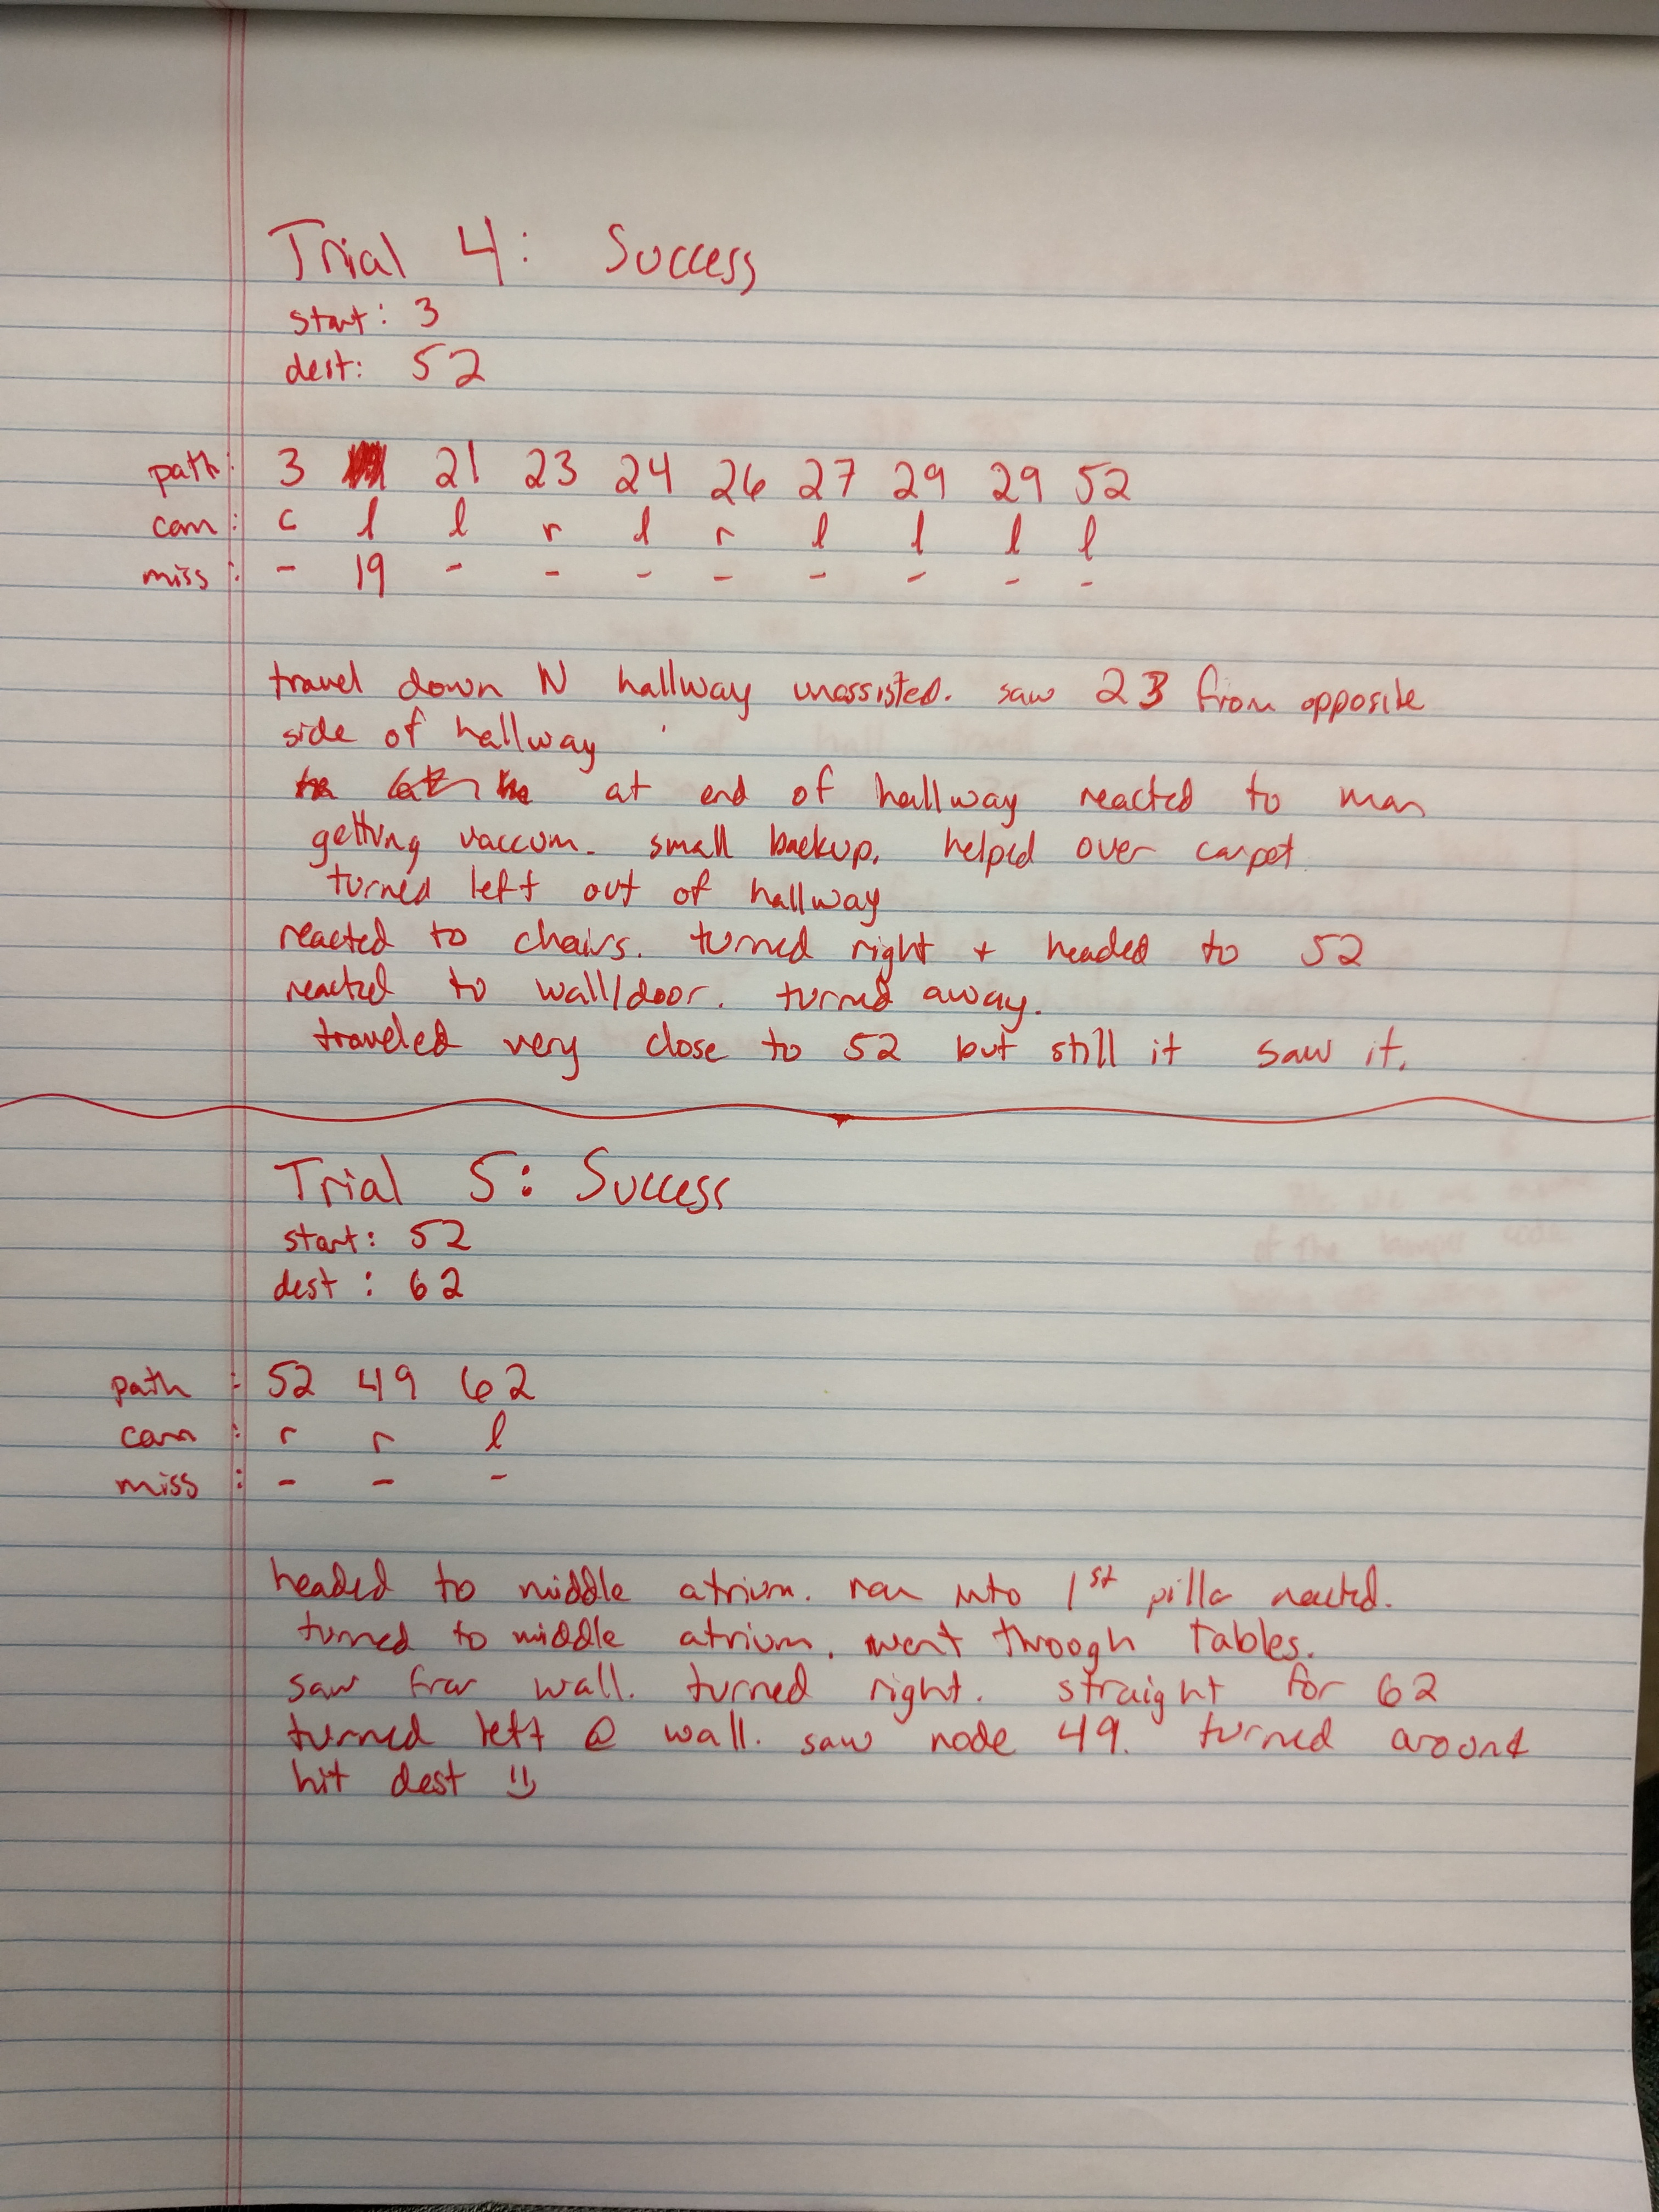 Trial 4: Success
start: 3
dest: 52
path: 3 21 23 24 26 27 29 29 52
cam: c l l r l r l l l l
miss: - 19 - - - - - - - -
travel down N hallway unassisted. saw 23 from opposite
side of hallway
at end of hallway reacted to man
getting vaccum. small backup. helped over carpet
turned left out of hallway
reacted to chairs. turned right + headed to 52
reacted to wall/door. turned away.
traveled very close to 52 but still it saw it.
Trial 5: Success
start: 52
dest: 62
path: 52 49 62
cam: r r l
miss: - - -
headed to middle atrium. ran into 1st pillar reacted.
turned to middle atrium. went through tables.
saw far wall. turned right. straight for 62
turned left @ wall. saw node 49. turned around
hit dest